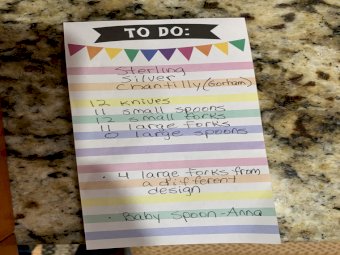 TO DO:
Sterling
Silver
Chantilly (Gorham)
12 knives
11 small spoons
12 small forks
11 large forks
0 large spoons
• 4 large forks from
a different
design
• Baby Spoon - Anna